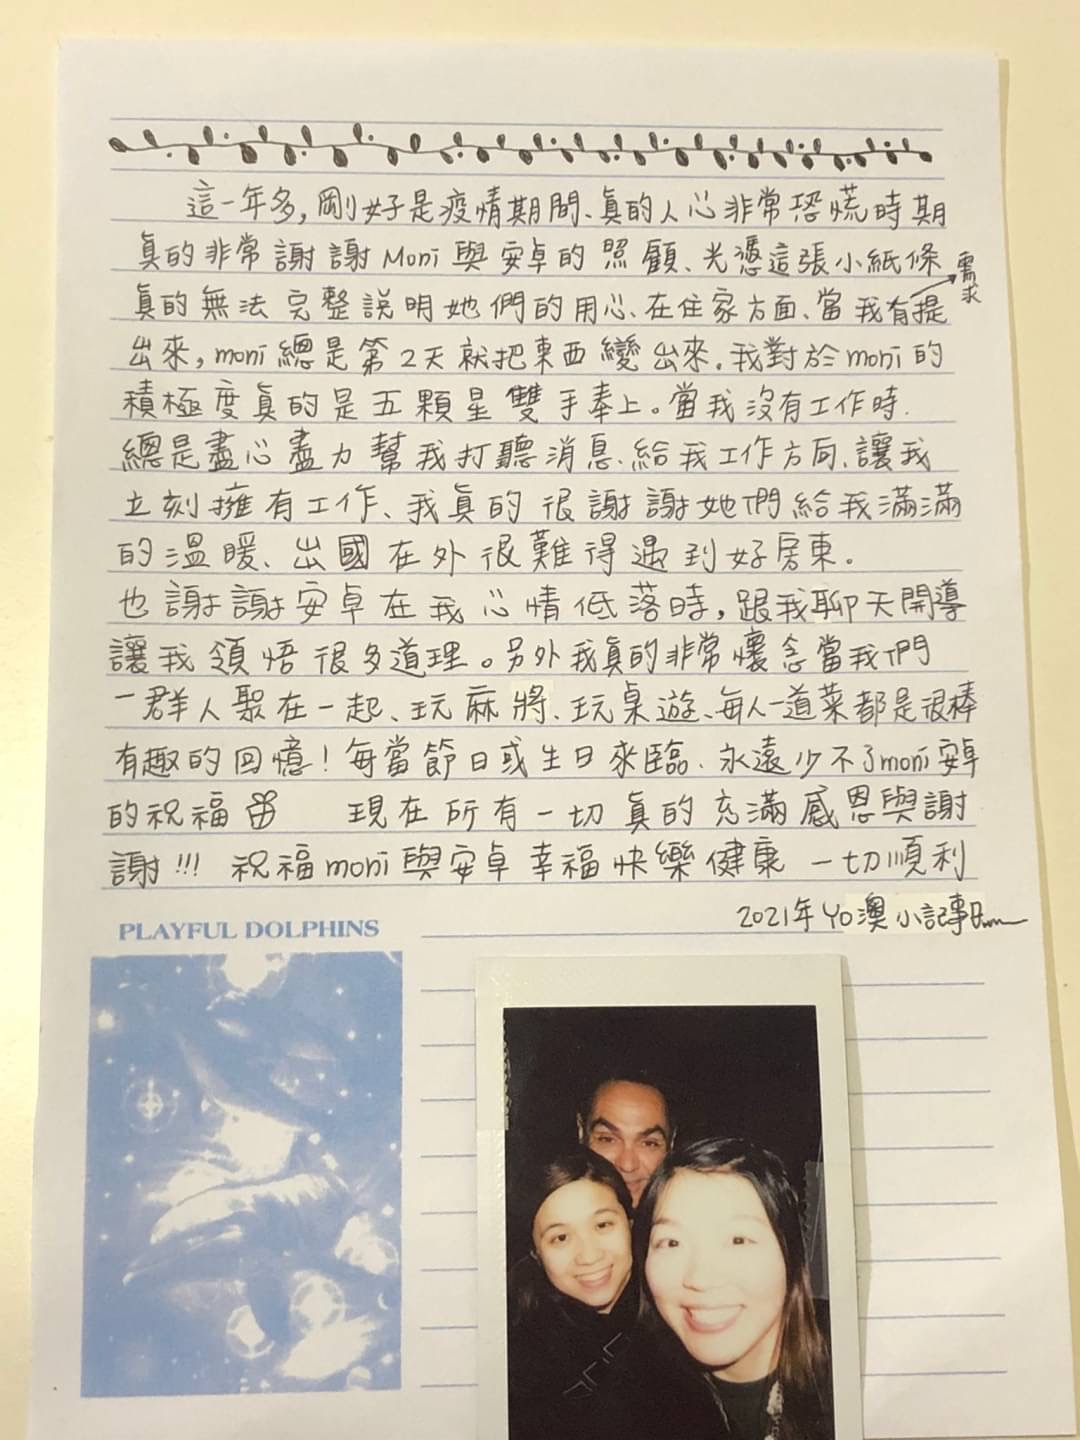 這一年多,剛好是疫情期間、真的人心非常恐慌時期
真的非常謝謝Moni與安卓的照顧、光憑這張小紙條
真的無法完整說明她們的用心、在住家方面、當我有提
需求
出來,moni總是第2天就把東西變出來。我對於moni的
積極度真的是五顆星雙手奉上。當我沒有工作時.
總是盡心盡力幫我打聽消息、給我工作方向、讓我
立刻擁有工作、我真的很謝謝她們給我滿滿
的溫暖、出國在外很難得遇到好房東。
也謝謝安卓在我心情低落時,跟我聊天開導
讓我領悟很多道理。另外我真的非常懷念當我們
一群人聚在一起、玩麻將、玩桌遊、每人一道菜都是很棒
有趣的回憶!每當節日或生日來臨、永遠少不了moni安卓
的祝福 現在所有一切真的充滿感恩與謝
謝!!! 祝福moni與安卓幸福快樂健康 一切順利
2021年 Yo澳小記事
PLAYFUL DOLPHINS